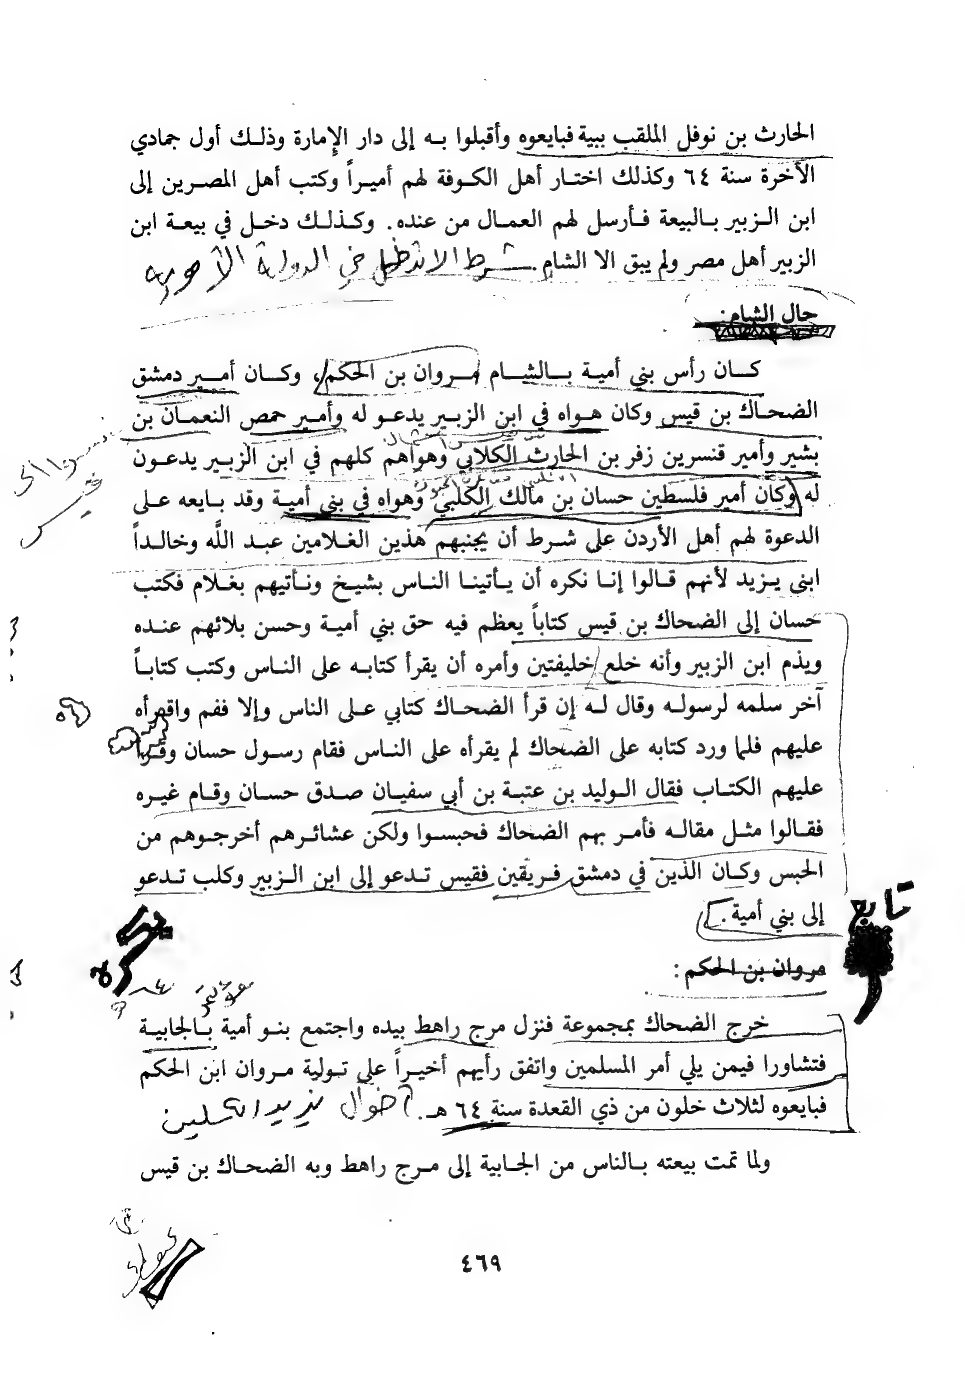 الحارث بن نوفل الملقب ببية فبايعوه وأقبلوا به إلى دار الإمارة وذلك أول جمادي
الآخرة سنة ٦٤ وكذلك اختار أهل الكوفة لهم أميراً وكتب أهل المصرين إلى
ابن الزبير بالبيعة فأرسل لهم العمال من عنده. وكذلك دخل في بيعة ابن
الزبير أهل مصر ولم يبق الا الشام.
حال الشام:
كان رأس بني أمية بالشام مروان بن الحكم، وكان أمير دمشق
الضحاك بن قيس وكان هواه في ابن الزبير يدعو له وأمير حمص النعمان بن
بشير وأمير قنسرين زفر بن الحارث الكلابي وهواهم كلهم في ابن الزبير يدعون
له وكان أمير فلسطين حسان بن مالك الكلبي وهواه في بني أمية وقد بايعه على
الدعوة لهم أهل الأردن على شرط أن يجنبهم هذين الغلامين عبد الله وخالداً
ابني يزيد لأنهم قالوا إنا نكره أن يأتينا الناس بشيخ ونأتيهم بغلام فكتب
حسان إلى الضحاك بن قيس كتاباً يعظم فيه حق بني أمية وحسن بلائهم عنده
ويذم ابن الزبير وأنه خلع خليفتين وأمره أن يقرأ كتابه على الناس وكتب كتاباً
آخر سلمه لرسوله وقال له إن قرأ الضحاك كتابي على الناس وإلا فقم واقرأه
عليهم فلما ورد كتابه على الضحاك لم يقرأه على الناس فقام رسول حسان وقرأ
عليهم الكتاب فقال الوليد بن عتبة بن أبي سفيان صدق حسان وقام غيره
فقالوا مثل مقاله فأمر بهم الضحاك فحبسوا ولكن عشائرهم أخرجوهم من
الحبس وكان الذين في دمشق فريقين فقيس تدعو إلى ابن الزبير وكلب تدعو
إلى بني أمية.
تابع
مروان بن الحكم:
خرج الضحاك بمجموعة فنزل مرج راهط بيده واجتمع بنو أمية بالجابية
فتشاورا فيمن يلي أمر المسلمين واتفق رأيهم أخيراً على تولية مروان ابن الحكم
فبايعوه لثلاث خلون من ذي القعدة سنة ٦٤ هـ.
ولما تمت بيعته بالناس من الجابية إلى مرج راهط وبه الضحاك بن قيس
٤٦٩